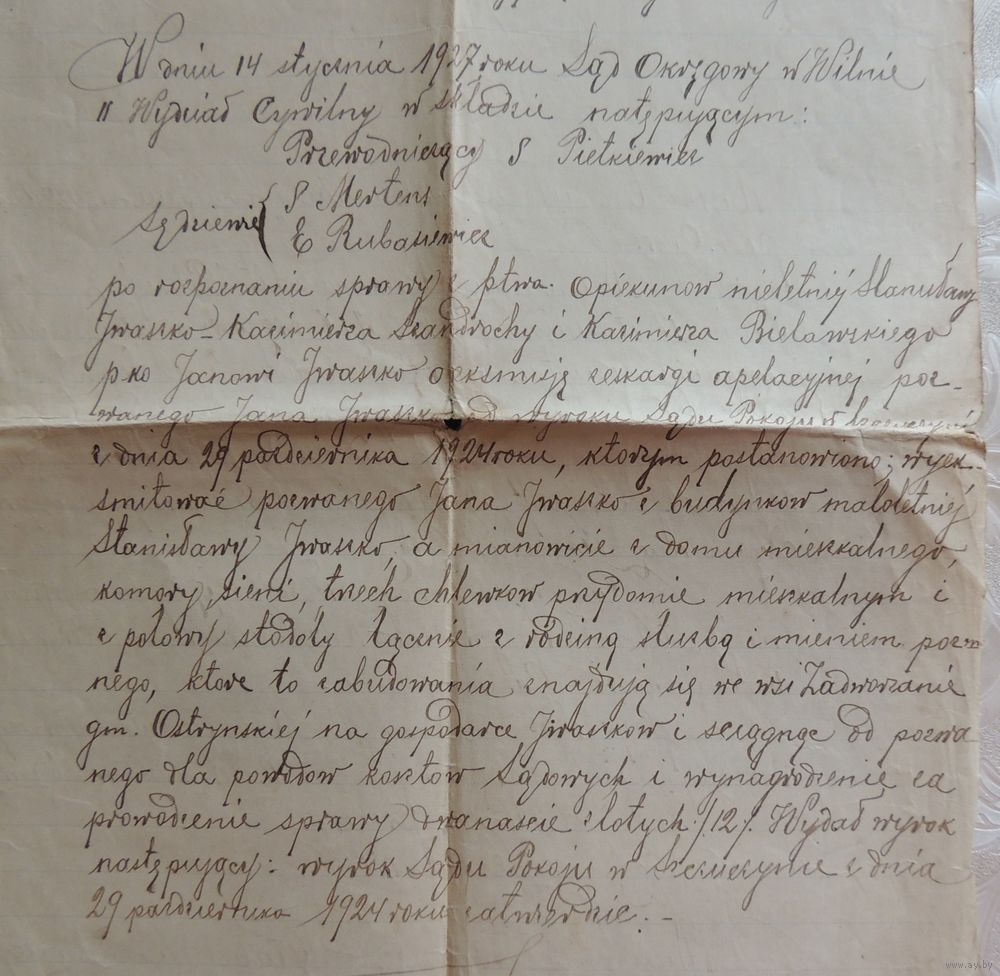 W dniu 14 stycznia 1927 roku Sąd Okręgowy w Wilnie
II Wydział Cywilny w składzie natępującym:
Przewodniczący S Pietkiewicz
Sędziewie { S Mertens
E Rubasiewicz
po rozpoznaniu sprawy z ptwa. Opiekunow nieletnij Stanisławy
Iwaszko - Kazimierza Szandrochy i Kazimierza Bielawskiego
p-ko Janowi Iwaszko o eksmisję z skargi apelacyjnej poz-
wanego Jana Iwaszko od wyroku Sądu Pokoju w
z dnia 29 pazdziernika 1924 roku, ktorym postanowiono; wyek-
smitować pozwanego Jana Iwaszko z budynkow małoletniej
Stanisławy Iwaszko, a mianowicie z domu mieszkalnego,
komory, sieni, trzech chlewkow przy domie mieszkalnym i
z połowy stodoły łącznie z rodziną służbą i mieniem pozwa
nego, ktore to zabudowania znajdują się we wsi Zadworzanie
gm. Ostrynskiej na gospodarce Iwaszkow i sciągnąc od pozwa
nego dla powodow kosztow sądowych i wynagrodzenie za
prowodzenie sprawy dwanascie złotych /12/. Wydał wyrok
następujący: wyrok Sądu Pokoju w Szczuczynie z dnia
29 pazdziernika 1924 roku zatwierdzic. -
www.ay.by